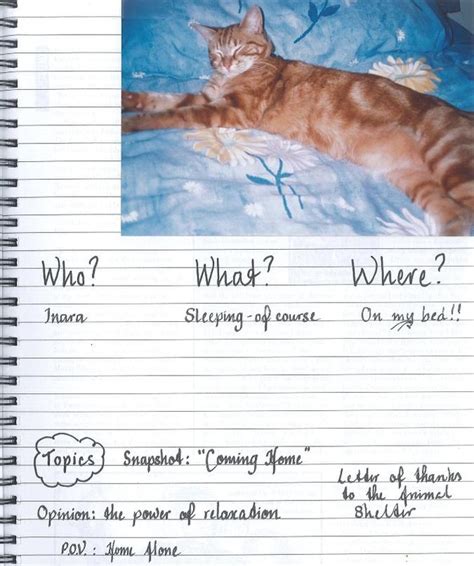 Who? What? Where?
Inara Sleeping - of course On my bed!!
Topics Snapshot: "Coming Home"
Letter of thanks
to the Animal
Shelter
Opinion: the power of relaxation
P.O.V.: Home Alone